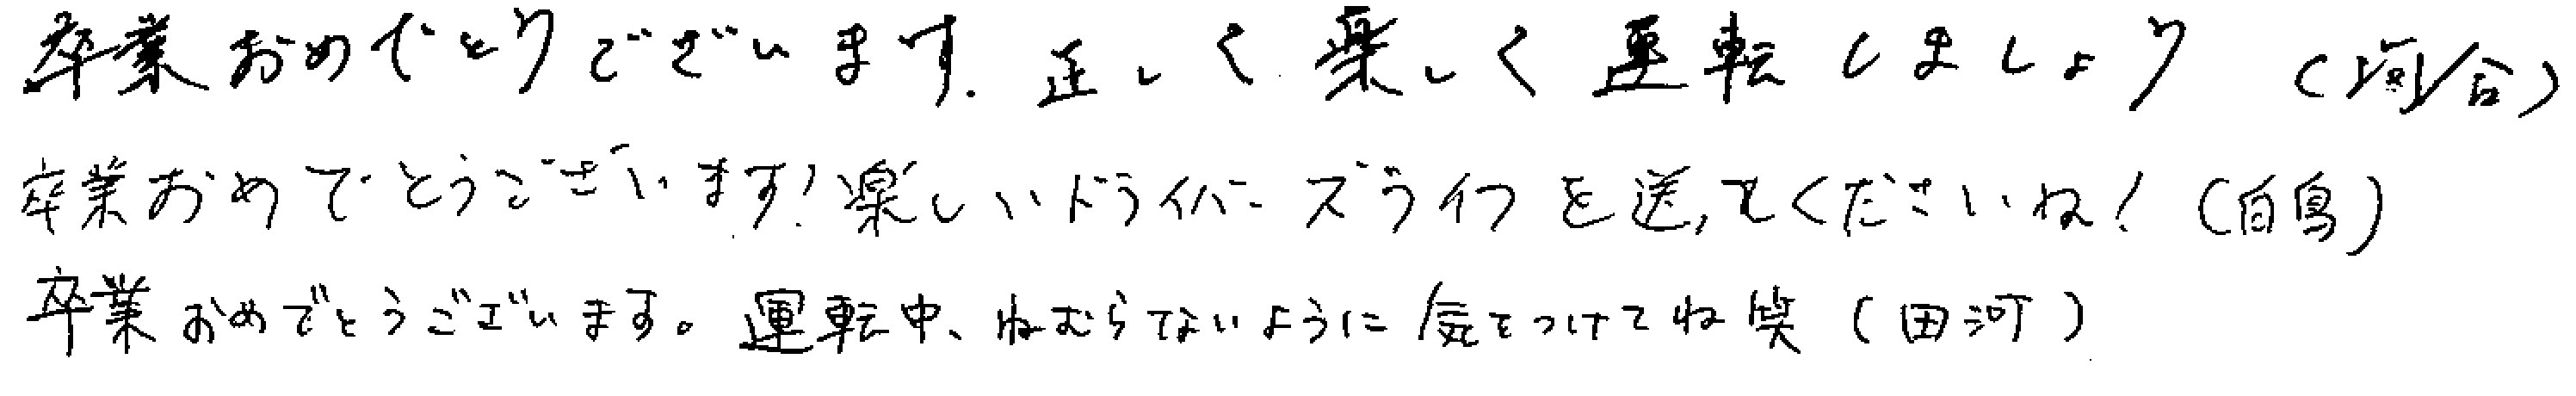 卒業おめでとうございます. 正しく楽しく運転しましょう (河合)
卒業おめでとうございます! 楽しいドライバーズライフを送ってくださいね! (白鳥)
卒業おめでとうございます。運転中、ねむらないように気をつけてね笑 (田河)